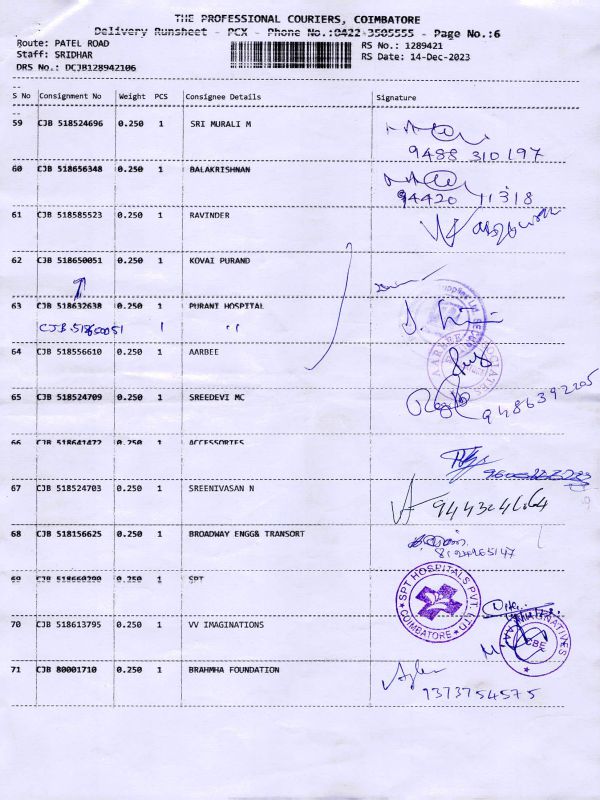 THE PROFESSIONAL COURIERS, COIMBATORE
Delivery Runsheet - PCX - Phone No.:0422-3505555 - Page No.:6
Route: PATEL ROAD RS No.: 1289421
Staff: SRIDHAR RS Date: 14-Dec-2023
DRS No.: DCJB128942106
S No Consignment No Weight PCS Consignee Details Signature
59 CJB 518524696 0.250 1 SRI MURALI M
9488 310197
60 CJB 518656348 0.250 1 BALAKRISHNAN
94420 11318
61 CJB 518585523 0.250 1 RAVINDER
62 CJB 518650051 0.250 1 KOVAI PURAND
63 CJB 518632638 0.250 1 PURANI HOSPITAL
CJB 518650051 1 "
64 CJB 518556610 0.250 1 AARBEE
AARBEE
65 CJB 518524709 0.250 1 SREEDEVI MC
9486392205
66 CJB 518641472 0.250 1 ACCESSORIES
67 CJB 518524703 0.250 1 SREENIVASAN N
68 CJB 518156625 0.250 1 BROADWAY ENGG& TRANSORT
8124265147
69 CJB 518660290 0.250 1 SPT
SPT HOSPITALS PVT. LTD
COIMBATORE
70 CJB 518613795 0.250 1 VV IMAGINATIONS
CBE
71 CJB 80001710 0.250 1 BRAHMHA FOUNDATION
9373754575